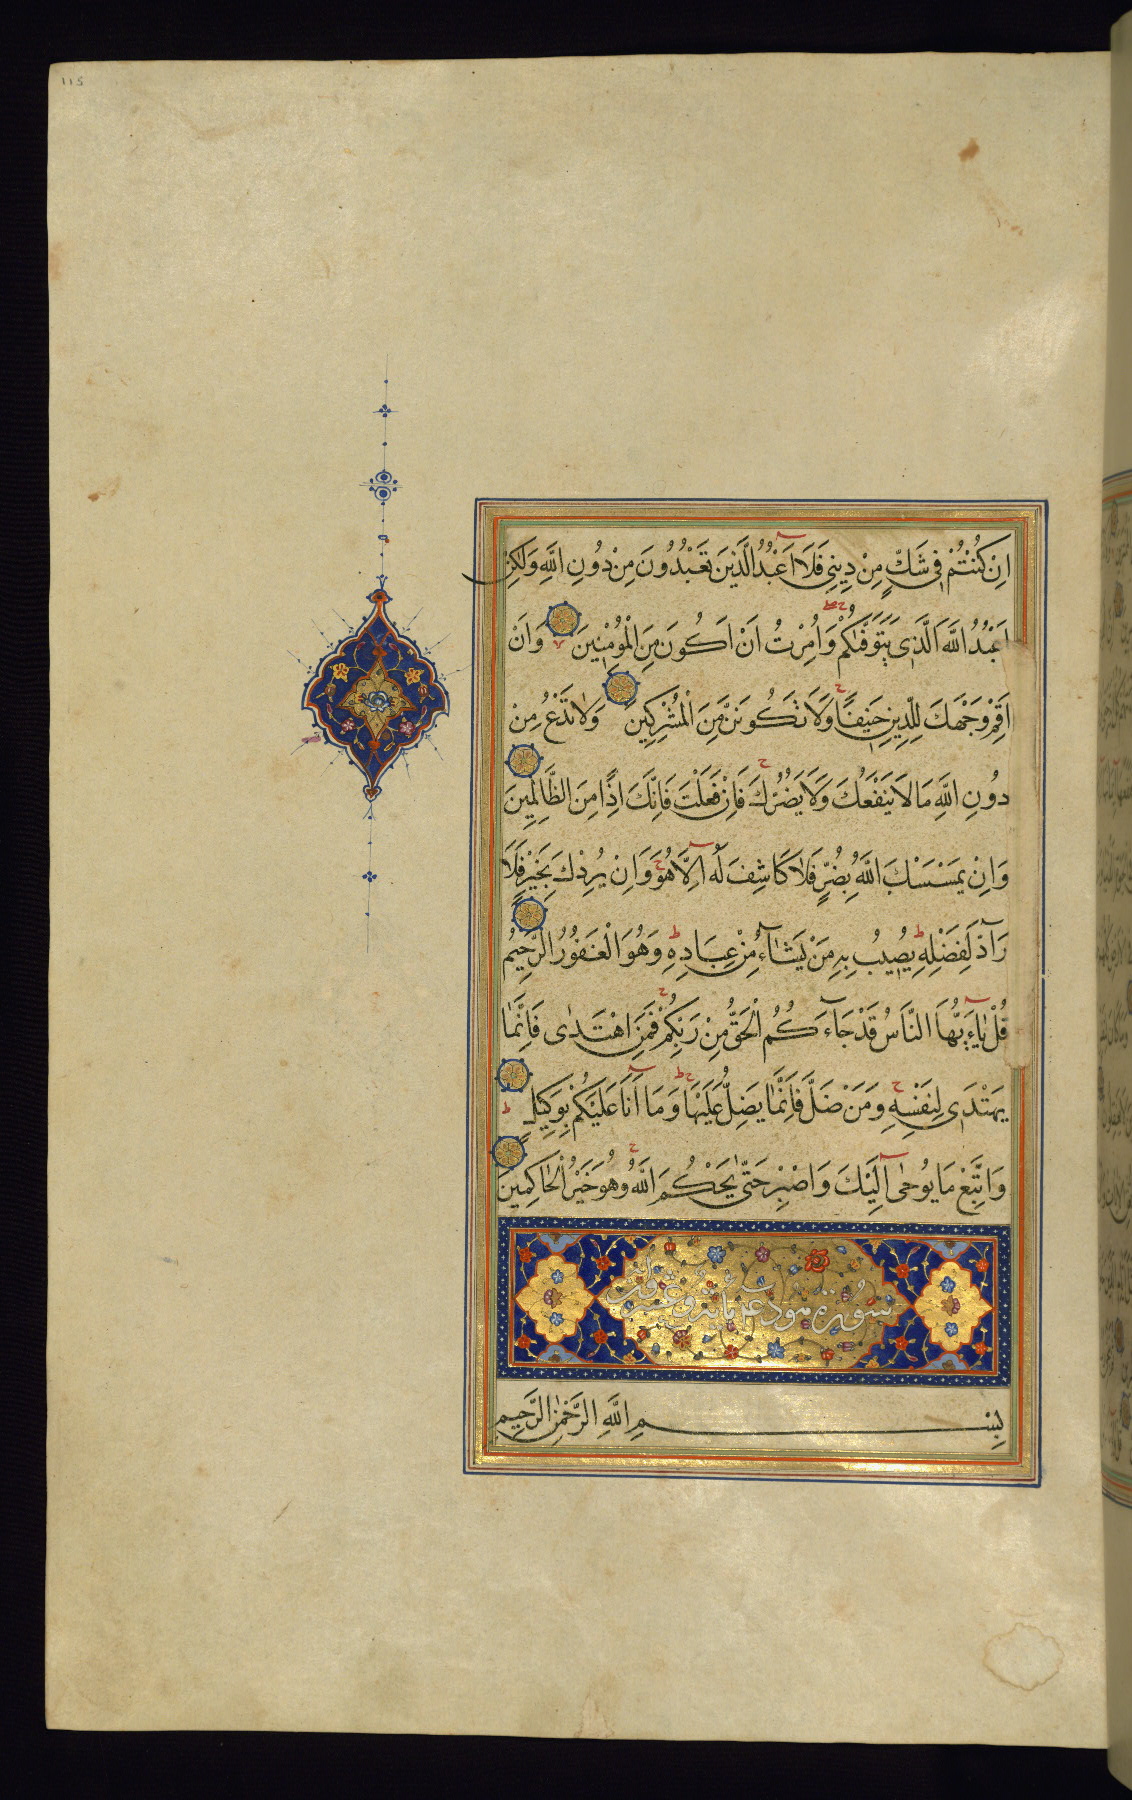 115
اِنْ كُنْتُمْ فِي شَكٍّ مِنْ دِينِي فَلَآ اَعْبُدُ الَّذِينَ تَعْبُدُونَ مِنْ دُونِ اللّٰهِ وَلٰكِنْ
اَعْبُدُ اللّٰهَ الَّذِي يَتَوَفّٰىكُمْ وَاُمِرْتُ اَنْ اَكُونَ مِنَ الْمُؤْمِنِينَ وَاَنْ
اَقِمْ وَجْهَكَ لِلدِّينِ حَنِيفًا وَلَا تَكُونَنَّ مِنَ الْمُشْرِكِينَ وَلَا تَدْعُ مِنْ
دُونِ اللّٰهِ مَا لَا يَنْفَعُكَ وَلَا يَضُرُّكَ فَاِنْ فَعَلْتَ فَاِنَّكَ اِذًا مِنَ الظَّالِمِينَ
وَاِنْ يَمْسَسْكَ اللّٰهُ بِضُرٍّ فَلَا كَاشِفَ لَهُ اِلَّا هُوَ وَاِنْ يُرِدْكَ بِخَيْرٍ فَلَا
رَآدَّ لِفَضْلِهِ يُصِيبُ بِهِ مَنْ يَشَآءُ مِنْ عِبَادِهِ وَهُوَ الْغَفُورُ الرَّحِيمُ
قُلْ يَآ اَيُّهَا النَّاسُ قَدْ جَآءَكُمُ الْحَقُّ مِنْ رَبِّكُمْ فَمَنِ اهْتَدٰى فَاِنَّمَا
يَهْتَدِي لِنَفْسِهِ وَمَنْ ضَلَّ فَاِنَّمَا يَضِلُّ عَلَيْهَا وَمَآ اَنَا عَلَيْكُمْ بِوَكِيلٍ
وَاتَّبِعْ مَا يُوحٰى اِلَيْكَ وَاصْبِرْ حَتّٰى يَحْكُمَ اللّٰهُ وَهُوَ خَيْرُ الْحَاكِمِينَ
سورة هود
بِسْمِ اللّٰهِ الرَّحْمٰنِ الرَّحِيمِ